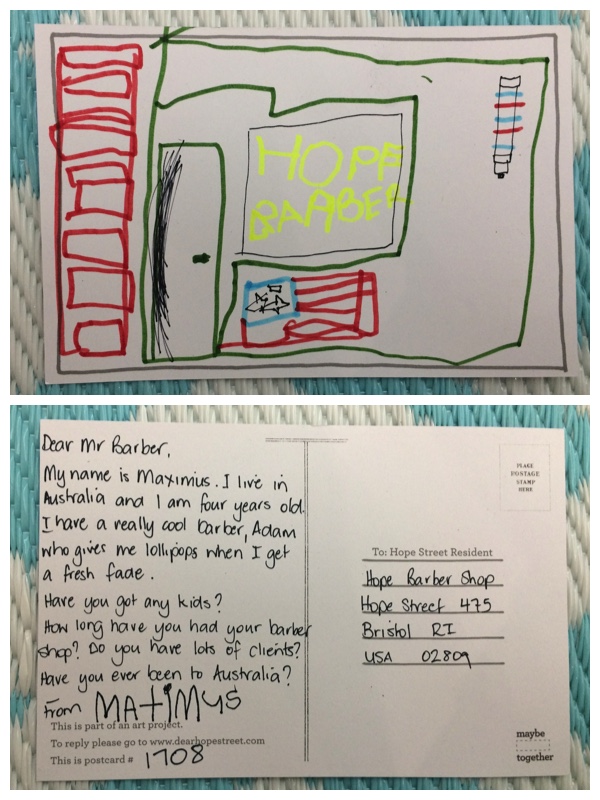 HOPE
BARBER
Dear Mr Barber,
My name is Maximius. I live in
Australia and I am four years old.
I have a really cool barber, Adam
who gives me lollipops when I get
a fresh fade.
Have you got any kids?
How long have you had your barber
shop? Do you have lots of clients?
Have you ever been to Australia?
From MATiMUS
This is part of an art project.
To reply please go to www.dearhopestreet.com
This is postcard # 1708
PLACE
POSTAGE
STAMP
HERE
To: Hope Street Resident
Hope Barber Shop
Hope Street 475
Bristol RI
USA 02809
maybe
together